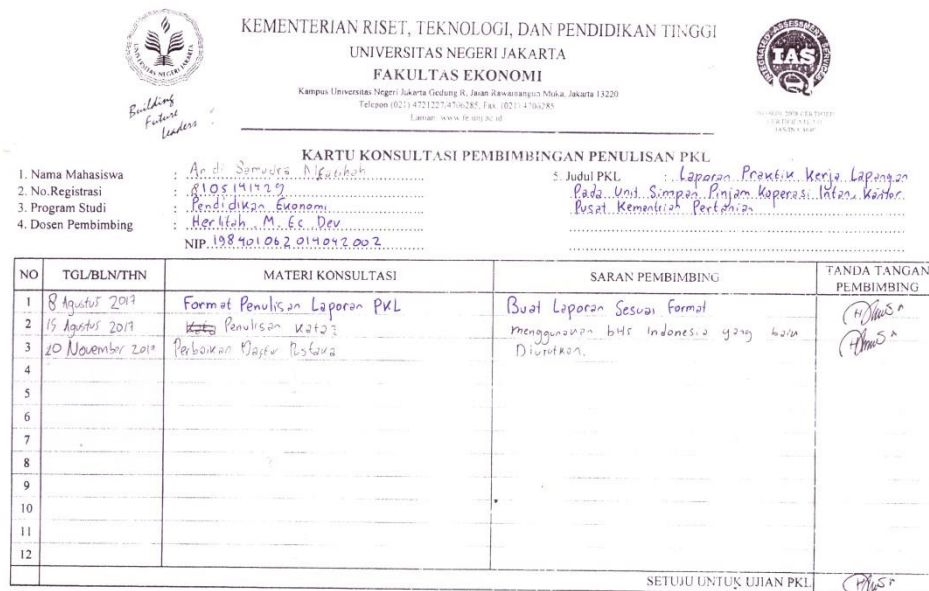 KEMENTERIAN RISET, TEKNOLOGI, DAN PENDIDIKAN TINGGI
UNIVERSITAS NEGERI JAKARTA
FAKULTAS EKONOMI
Kampus Universitas Negeri Jakarta Gedung R, Jalan Rawamangun Muka, Jakarta 13220
Telepon (021) 4721227/4706285, Fax. (021) 4706285
Laman: www.fe.unj.ac.id
Building
Future
Leaders
IAS
KARTU KONSULTASI PEMBIMBINGAN PENULISAN PKL
1. Nama Mahasiswa : Andi Samudra
2. No.Registrasi : 8105141429
3. Program Studi : Pendidikan Ekonomi
4. Dosen Pembimbing : Herlitah, M. Ec. Dev
NIP. 198401062014042002
5. Judul PKL : Laporan Praktik Kerja Lapangan
Pada Unit Simpan Pinjam Koperasi Intan Kantor
Pusat Kementrian Pertanian
NO TGL/BLN/THN MATERI KONSULTASI SARAN PEMBIMBING TANDA TANGAN PEMBIMBING
1 8 Agustus 2017 Format Penulisan Laporan PKL Buat Laporan Sesuai Format
2 15 Agustus 2017 Penulisan Kata2 menggunakan bhs Indonesia yang baik
3 20 November Perbaikan Daftar Pustaka Diurutkan.
4
5
6
7
8
9
10
11
12
SETUJU UNTUK UJIAN PKL